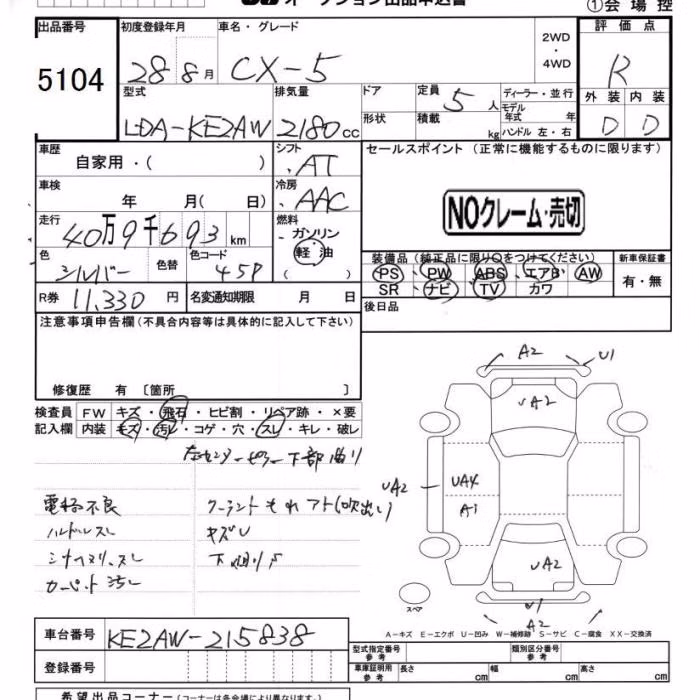 オークション出品申込書
①会場控
出品番号 初度登録年月 車名・グレード 2WD ・ 4WD 評価点
5104 28 8月 CX-5 R
型式 排気量 ドア 定員 5人 ディーラー・並行 外装 内装
LDA-KE2AW 2180cc 形状 積載 kg モデル年式 年 ハンドル 左・右 D D
車歴 自家用・( ) シフト AT セールスポイント (正常に機能するものに限ります)
車検 年 月( 日) 冷房 AAC
NOクレーム・売切
走行 40万9千693km 燃料 ガソリン 軽油 ( )
色 シルバー 色替 色コード 45P
装備品 (純正品に限り○をつけてください) 新車保証書
PS PW ABS エアB AW 有・無
SR ナビ TV カワ
R券 11,330円 名変通知期限 月 日 後日品
注意事項申告欄(不具合内容等は具体的に記入して下さい)
修復歴 有 〔箇所 〕
検査員 FW キズ・飛石・ヒビ割・リペア跡・×要
記入欄 内装 キズ・汚レ・コゲ・穴・スレ・キレ・破レ
下部曲り
電格不良 クーラントもれアト(吹出し)
ハンドルスレ キズU
シートスレ 下廻りS
カーペット汚レ
A2 U1
UA2
UA2 UA4
A1
UA2
U1
A2
スペア
A-キズ E-エクボ U-凹み W-補修跡 S-サビ C-腐食 XX-交換済
車台番号 KE2AW-215838
型式指定番号 参考 類別区分番号 参考
登録番号 車庫証明用 参考 長さ cm 幅 cm 高さ cm
希望出品コーナー (コーナーは各会場により異なります)